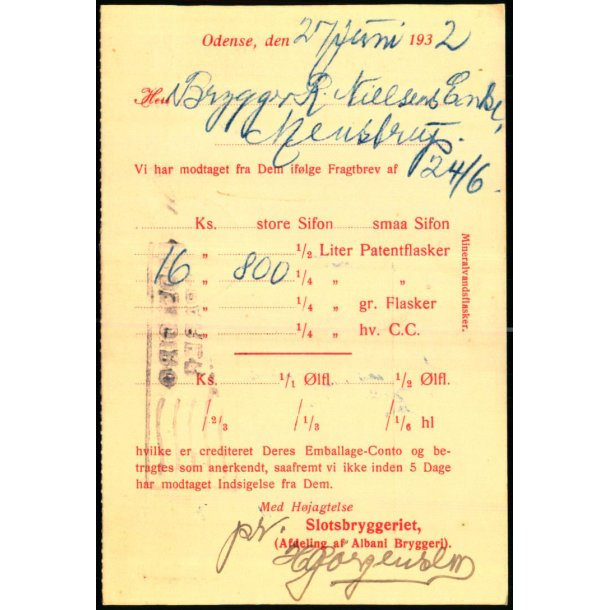 Odense, den 27 Juni 1932
Herr Brygger R. Nielsens Enke,
Menstrup.
Vi har modtaget fra Dem ifølge Fragtbrev af 24/6.
Ks. store Sifon smaa Sifon
„ 1/2 Liter Patentflasker
16 „ 800 1/4 „ „
„ 1/4 „ gr. Flasker
„ 1/4 „ hv. C.C.
Mineralvandsflasker.
Ks. 1/1 Ølfl. 1/2 Ølfl.
/2/3 /1/3 /1/6 hl
hvilke er crediteret Deres Emballage-Conto og be-
tragtes som anerkendt, saafremt vi ikke inden 5 Dage
har modtaget Indsigelse fra Dem.
Med Højagtelse
pr. Slotsbryggeriet,
(Afdeling af Albani Bryggeri).
H Jørgensen